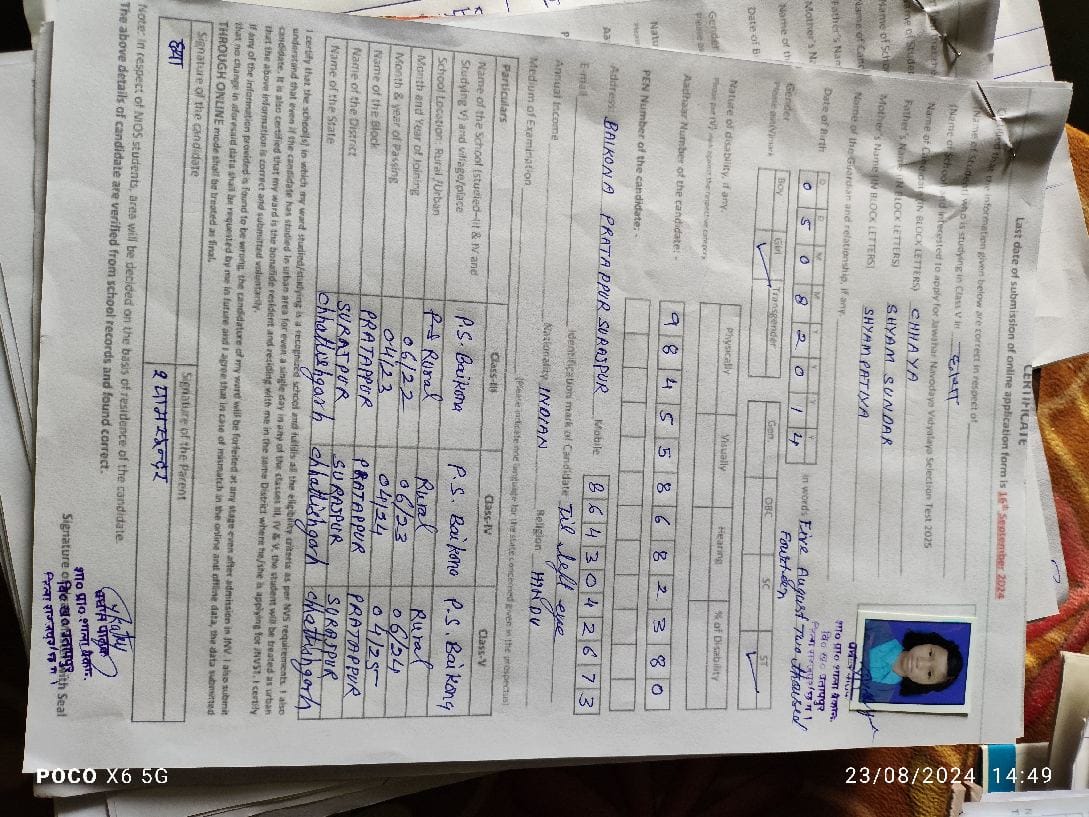 CERTIFICATE
Last date of submission of online application form is 16th September 2024
information given below are correct in respect of
who is studying in Class V in
interested to apply for Jawahar Navodaya Vidyalaya Selection Test 2025
Name of Candidate (IN BLOCK LETTERS) CHHAYA
Father's Name (IN BLOCK LETTERS) SHYAM SUNDAR
Mother's Name (IN BLOCK LETTERS) SHYAMPATIYA
Name of the Guardian and relationship, if any.
D D M M Y Y Y Y
Date of Birth 0 5 0 8 2 0 1 4 In words Five August Two thousand
Fourteen
Gender Boy Girl ✓ Transgender Gen OBC SC ST ✓
Nature of disability, if any. Physically Visually Hearing % of Disability
Aadhaar Number of the candidate:- 9 8 4 5 5 8 6 8 2 3 8 0
PEN Number of the candidate:-
Address: BAIKONA PRATAPPUR SURAJPUR Mobile 8 6 4 3 0 4 2 6 7 3
E-mail Identification mark of Candidate Til left eye
Annual Income Nationality INDIAN Religion HINDU
Medium of Examination (Please indicate one language for the state concerned given in the prospectus)
Particulars Class-III Class-IV Class-V
Name of the School (studied-III & IV and Studying V) and village/place P.S. Baikona P.S. Baikona P.S. Baikona
School Location: Rural /Urban Rural Rural Rural
Month and Year of Joining 06/22 06/23 06/24
Month & year of Passing 04/23 04/24 04/25
Name of the Block PRATAPPUR PRATAPPUR PRATAPPUR
Name of the District SURAJPUR SURAJPUR SURAJPUR
Name of the State Chhattishgarh chhattishgarh chhattishgarh
I certify that the school(s) in which my ward studied/studying is a recognized school and fulfills all the eligibility criteria as per NVS requirements. I also
understand that even if the candidate has studied in urban area for even a single day in any of the classes III, IV & V, the student will be treated as urban
candidate. It is also certified that my ward is the bonafide resident and residing with me in the same District where he/she is applying for JNVST. I certify
that the above information is correct and submitted voluntarily.
If any of the information provided is found to be wrong, the candidature of my ward will be forfeited at any stage even after admission in JNV. I also submit
that no change in aforesaid data shall be requested by me in future and I agree that in case of mismatch in the online and offline data, the data submitted
THROUGH ONLINE mode shall be treated as final.
Signature of the candidate Signature of the Parent
छाया श्यामसुन्दर
Note: In respect of NIOS students, area will be decided on the basis of residence of the candidate.
The above details of candidate are verified from school records and found correct.
with Seal
POCO X6 5G
23/08/2024 14:49